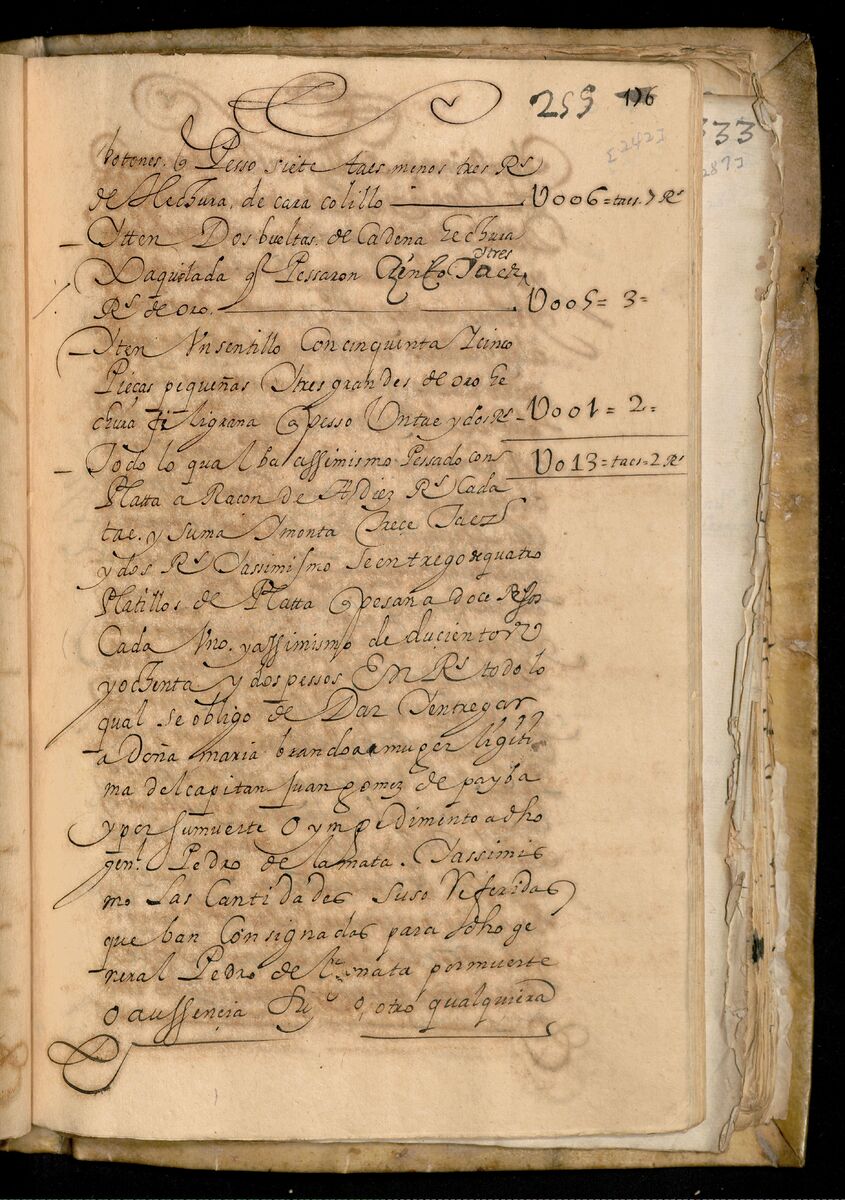 255 176
[242]
333
287]
botones. q Pesso siete taes menos tres Rs
de Hechura, de cara colillo — U006=taes.7 Rs
— Ytten Dos bueltas. de Cadena hechura
Xaquelada q Pessaron Zinko Taez Ytres
Rs de oro. — U005= 3=
— Yten Vn sentillo Con cinquenta Zcinco
Pieças pequeñas Ytres grandes de oro he
chura filigrana q pesso Untae y dos Rs — U001= 2=
— Todo lo qual ba assimismo Pessado con U013=taes=2 Rs
Platta a Racon de Adiez Rs Cada
tae. y suma Ymonta Trece Taezs
y dos Rs Yassimismo Se entrego de quatro
Platillos de Platta q pesan a doce
Cada Vno. yassimismo de ducientos
yochenta y dos pessos En Rs todo lo
qual se obligo de Dar Yentregar
a Doña maria brandoa muger ligiti
ma del capitan Juan gomez de payba
y por sumuerte O ympedimento adho
genl. Pedro de lamata. Yassimis
mo Las Cantidades suso Referidas
que ban Consignadas para dho ge
neral Pedro de la mata por muerte
o aussençia Suya o, otro qualquiera